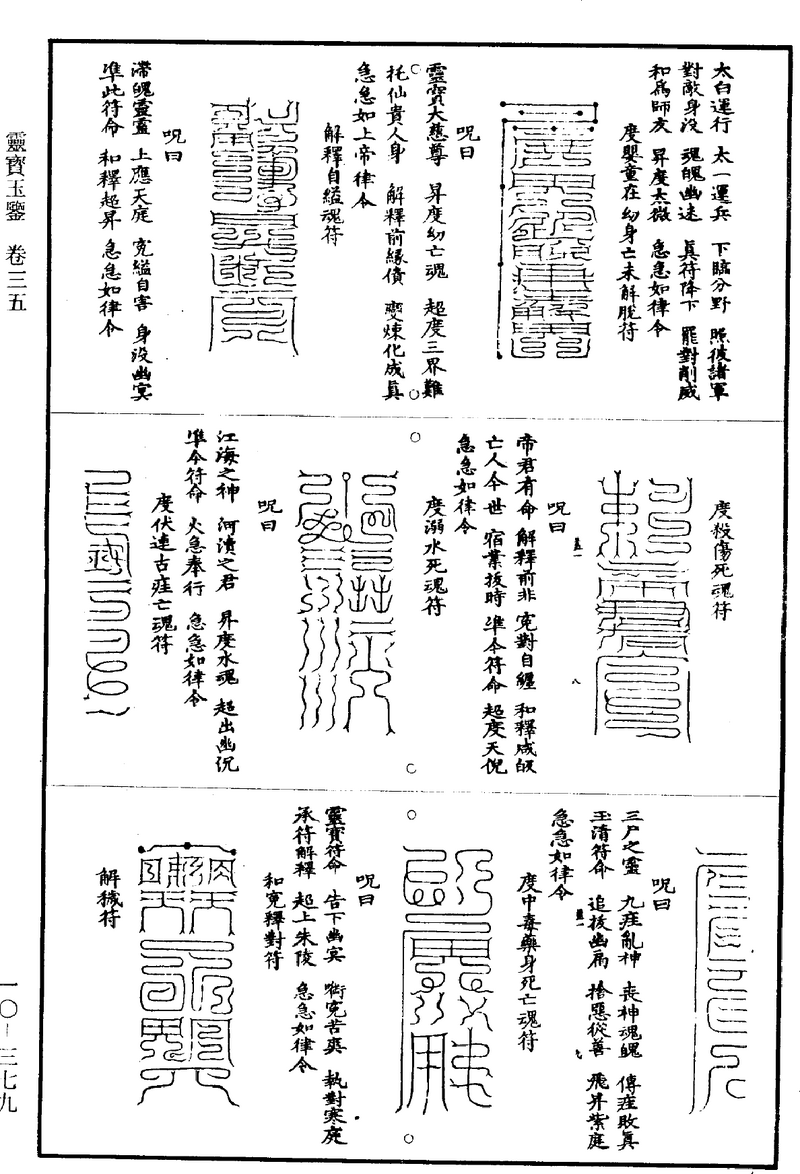 太白運行　太一運兵　下臨分野　照彼諸軍
對敵身沒　魂魄幽迷　真符降下　罷對削威
和爲師友　昇度太微　急急如律令
度嬰童在幼身亡未解脫符
呪曰
靈寶大慈尊　昇度幼亡魂　超度三界難
托仙貴人身　解釋前緣債　變煉化成真
急急如上帝律令
解釋自縊魂符
呪曰
滯魄靈靈　上應天庭　寃縊自害　身沒幽冥
準此符命　和釋超昇　急急如律令
度殺傷死魂符
呪曰
帝君有命　解釋前非　寃對自纏　和釋成皈
亡人今世　宿業拔時　準今符命　超度天倪
急急如律令
度溺水死魂符
呪曰
江海之神　河瀆之君　昇度水魂　超出幽沉
準今符命　火急奉行　急急如律令
度伏連古疰亡魂符
呪曰
三尸之靈　九疰亂神　喪神魂魄　傳疰敗真
玉清符命　追拔幽扃　捨惡從善　飛昇紫庭
急急如律令
度中毒藥身死亡魂符
呪曰
靈寶符命　告下幽冥　銜寃苦爽　執對寒庭
承符解釋　超上朱陵　急急如律令
和寃釋對符
解穢符
靈寶玉鑒　卷三五
一〇－三七九